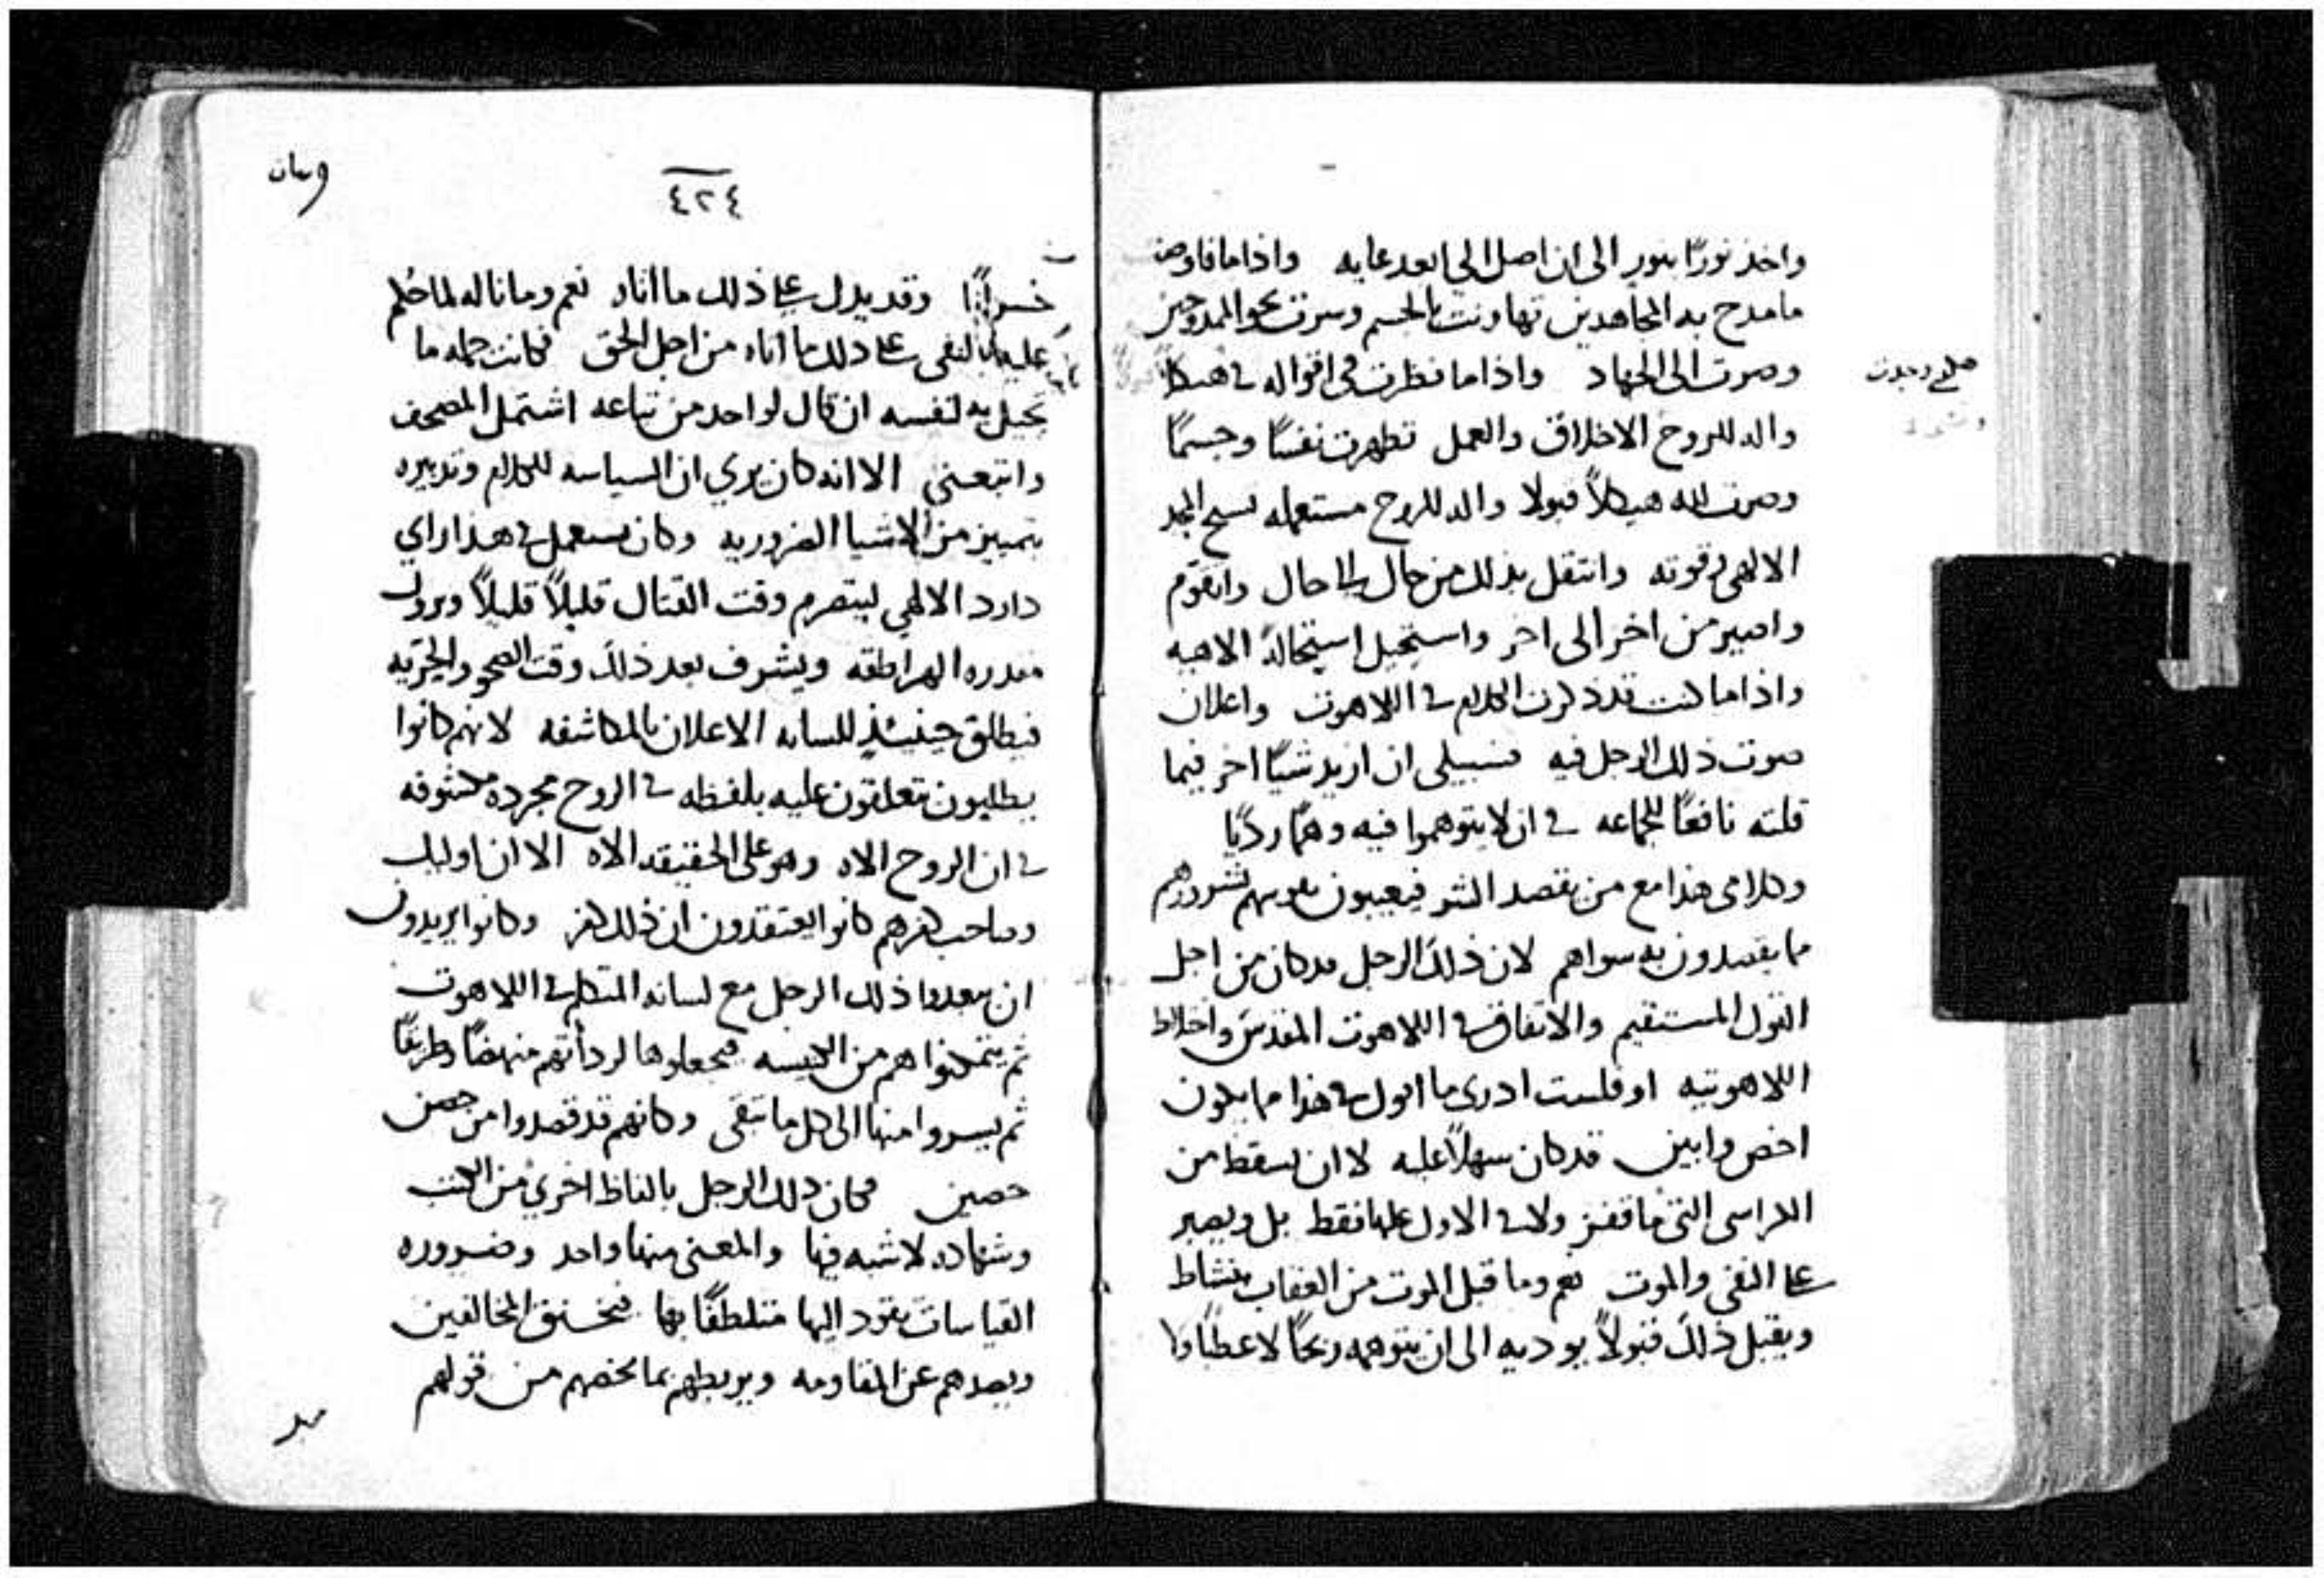 واخذ نورًا بنور الى ان اصل الى ابعد غايه واذا ما فاوضت
ما مدح به المجاهدين تهاونت بالجسم وسرت نحو الممدوحين
وصرت الى الجهاد واذا ما نظرت في اقواله في هيكلا
والد للروح الاخلاق والعمل تطهرت نفسًا وجسمًا
وصرت لله هيكلاً قبولا والد للروح مستعمله تسبح المجد
الالهي وقوته وانتقل بذلك من حال الى حال واتقوم
واصير من اخر الى اخر واستحيل استحالةً الاهيه
واذا ما كنت قد ذكرت الكلام في اللاهوت واعلان
صوت ذلك الرجل فيه فسبيلي ان ازيد شيًا اخر فيما
قلته نافعًا للجماعه في ان لا يتوهموا فيه وهمًا رديًا
وكلامي هذا مع من يقصد الشر فيعيبون بشرورهم
ما يقصدون به سواهم لان ذلك الرجل قد كان من اجل
القول المستقيم والاتفاق في اللاهوت المقدس واختلاط
اللاهوتيه او فلست ادرى ما اقول في هذا مما يكون
اخص وابين قد كان سهلاً عليه لا ان يسقط من
الكراسي التي ما قفز ولا في الاول عليها فقط بل ويصير
على النفي والموت نعم وما قبل الموت من العقاب بنشاط
ويقبل ذلك قبولاً يوديه الى ان يتوهمه ربحًا لا عطبًا ولا
صلح وجدت
٤٢٤
خسرانًا وقد يدل على ذلك ما اتاه نعم وما ناله لما حُكم
عليه بالنفي على ذلك ما اتاه من اجل الحق فكانت جمله ما
تحيل به لنفسه ان قال لواحد من تباعه اشتمل المصحف
واتبعنى الا انه كان يرى ان السياسه للكلام وتدبيره
بتمييز من الاشيا الضروريه وكان يستعمل في هذا راي
داود الالهي ليتصرم وقت القتال قليلاً قليلاً ويزول
مقدره الهراطقه ويشرف بعد ذلك وقت الصحو والحريه
فيطلق حينئذٍ للسانه الاعلان بالمكاشفه لانهم كانوا
يطلبون يتعلقون عليه بلفظه في الروح مجرده مكشوفه
في ان الروح الاه وهو على الحقيقه الاه الا ان اوليك
وصاحب كفرهم كانوا يعتقدون ان ذلك كفر وكانوا يريدون
ان يبعدوا ذلك الرجل مع لسانه المتكلم في اللاهوت
ثم يتمكنوا هم من الكنيسه فيجعلوها لرداتهم منهضًا وطريقًا
ثم يسيروا منها الى كل ما تبقى وكانهم قد قصدوا من حصن
حصين فكان ذلك الرجل بالفاظ اخرى من الكتب
وشهادات لا شبه فيها والمعنى منها واحد وضروره
القياسات يقود اليها متلطفًا بها فيخنق المخالفين
ويصدهم عن المقاومه ويربطهم بما يخصهم من قولهم